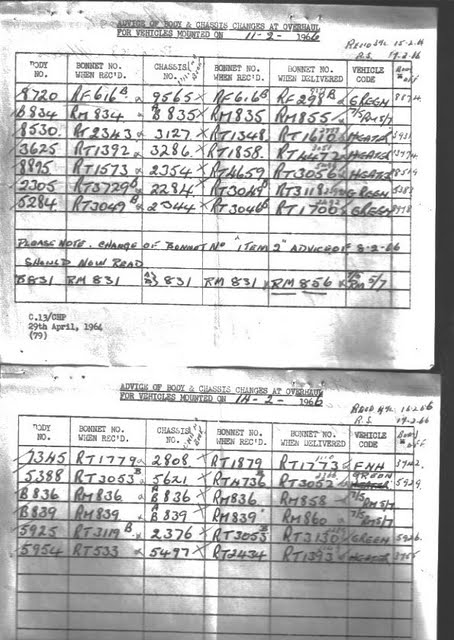 ADVICE OF BODY & CHASSIS CHANGES AT OVERHAUL
FOR VEHICLES MOUNTED ON 11-2- 1966
15-2-66
R.S. 19.2.66
BODY NO. BONNET NO. WHEN REC'D. CHASSIS NO. BONNET NO. WHEN REC'D. BONNET NO. WHEN DELIVERED VEHICLE CODE
8720 RF616B 9565 RF616B RF298B GREEN
B834 RM834 B835 RM835 RM855 7/5 RM5/7
8530 RT2343 3127 RT1348 HEATER
3625 RT1392 3286 RT1858 RT4472 HEATER
8895 RT1573 2354 RT4659 RT3056 HEATER
2305 RT3729B 2284 RT3118 GREEN
5284 RT3049B 2344 RT3046B RT1700 GREEN
PLEASE NOTE. CHANGE OF BONNET No "ITEM 2" ADVICE OF 8-2-66
SHOULD NOW READ
B831 RM831 831 RM831 RM856 7/5 RM 5/7
C.13/CHP
29th April, 1964
(79)
ADVICE OF BODY & CHASSIS CHANGES AT OVERHAUL
FOR VEHICLES MOUNTED ON 14-2- 1966
R.S. 19-2-66
BODY NO. BONNET NO. WHEN REC'D. CHASSIS NO. BONNET NO. WHEN REC'D. BONNET NO. WHEN DELIVERED VEHICLE CODE
RT1779 2808 RT1879 RT1773
5388 RT3053B 5621 RT4736 GREEN 5929
B836 RM836 B836 RM836 RM858 7/5 RM5/7
B839 RM839 B839 RM839 RM860 7/5 RM5/7
5925 RT3119B 2376 RT3053B RT3130 GREEN 5926
5954 RT533 5497 RT2434 RT1393 HEATER